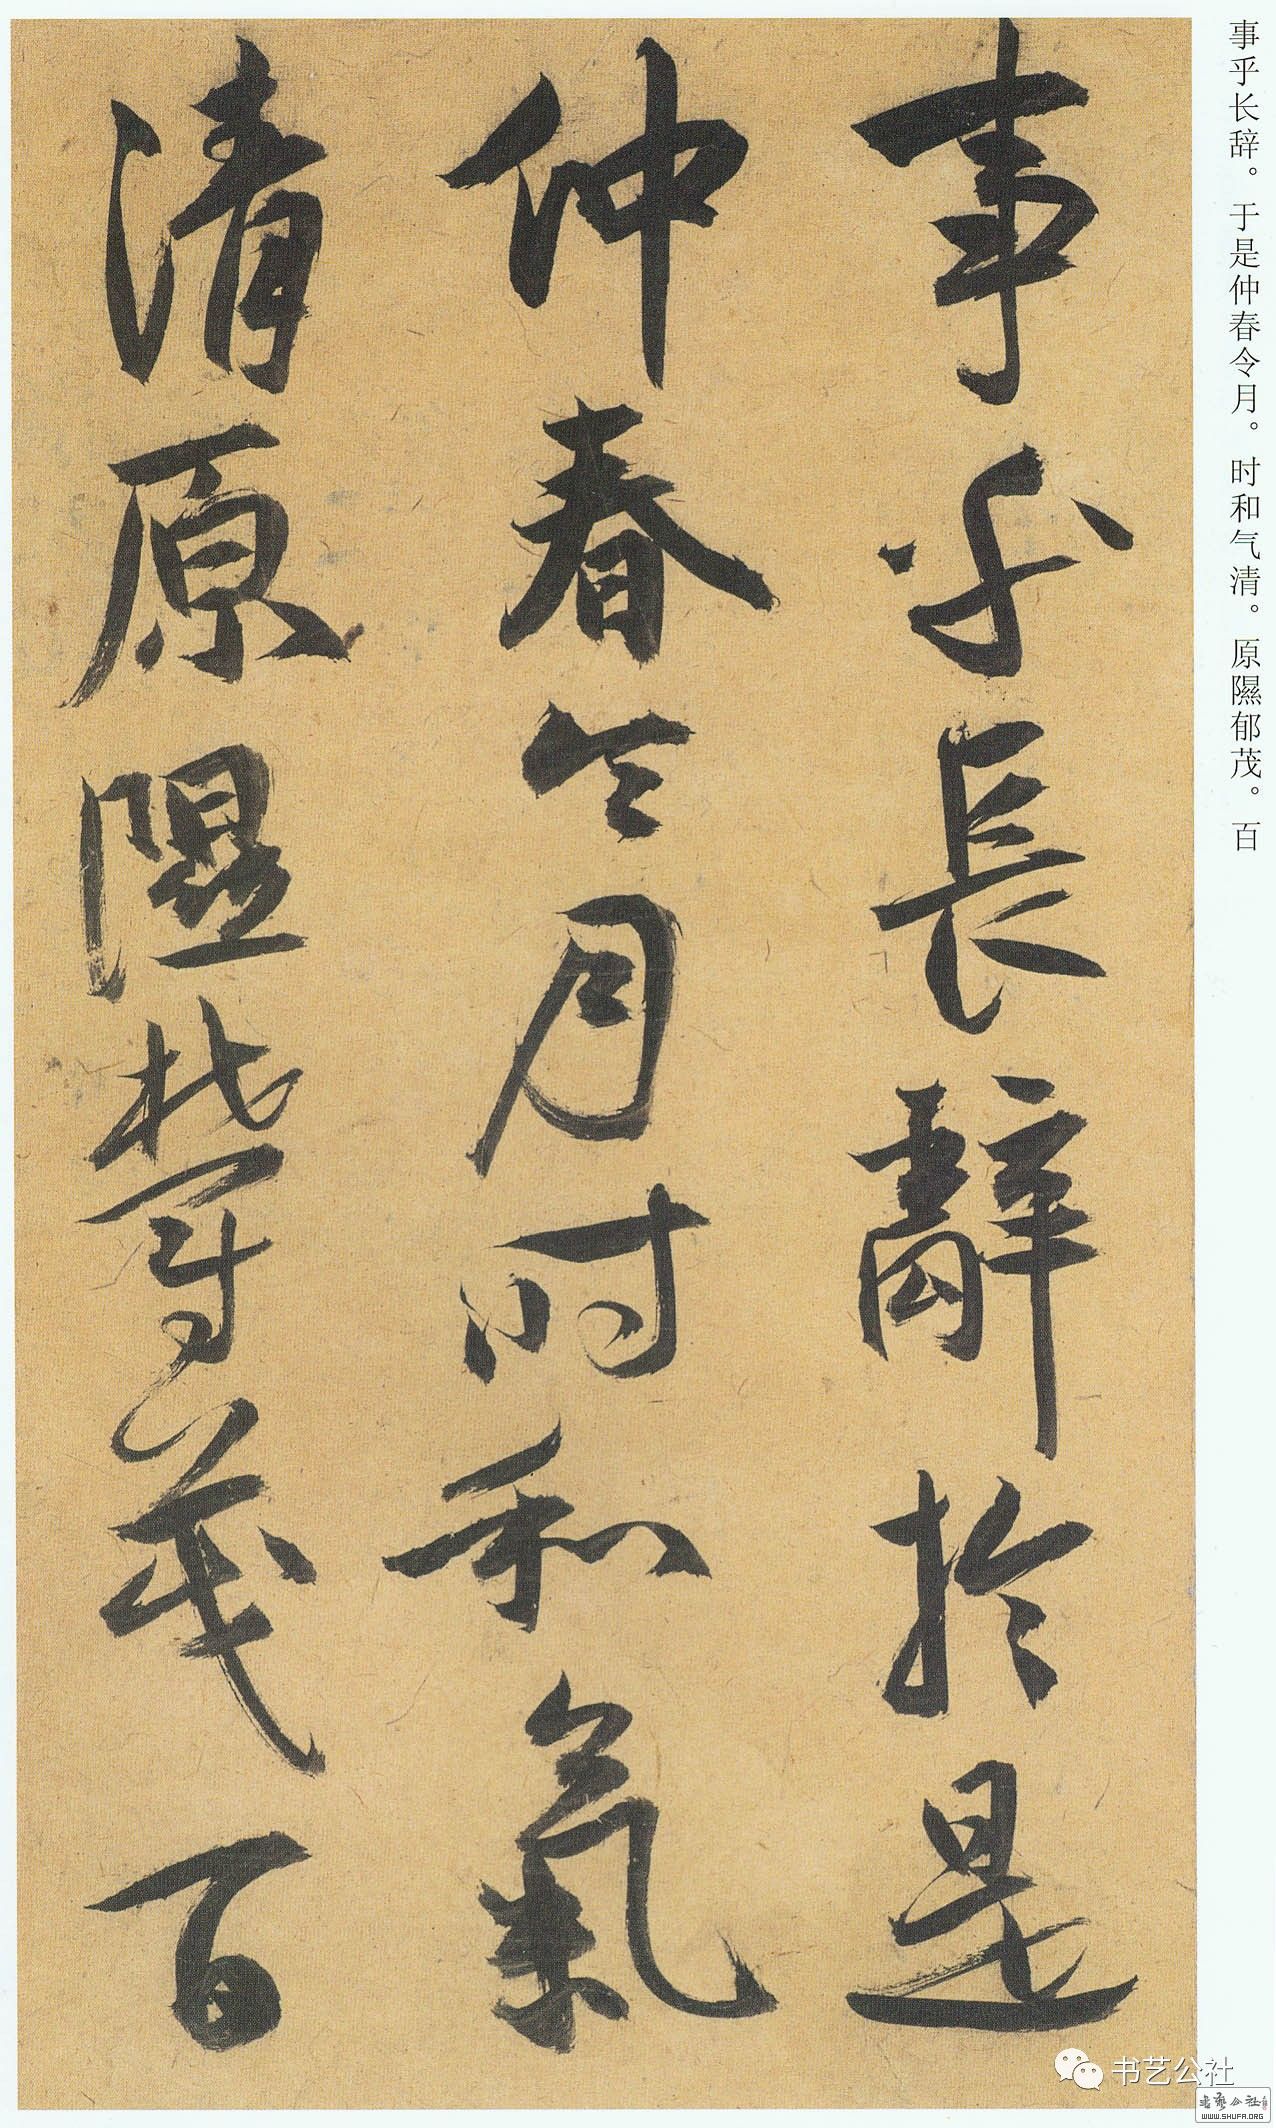 事乎长辞。于是仲春令月。时和气清。原隰郁茂。百
事乎長辭於是
仲春令月時和氣
清原隰鬱茂百
书艺公社
书艺公社
WWW.SHUFA.ORG